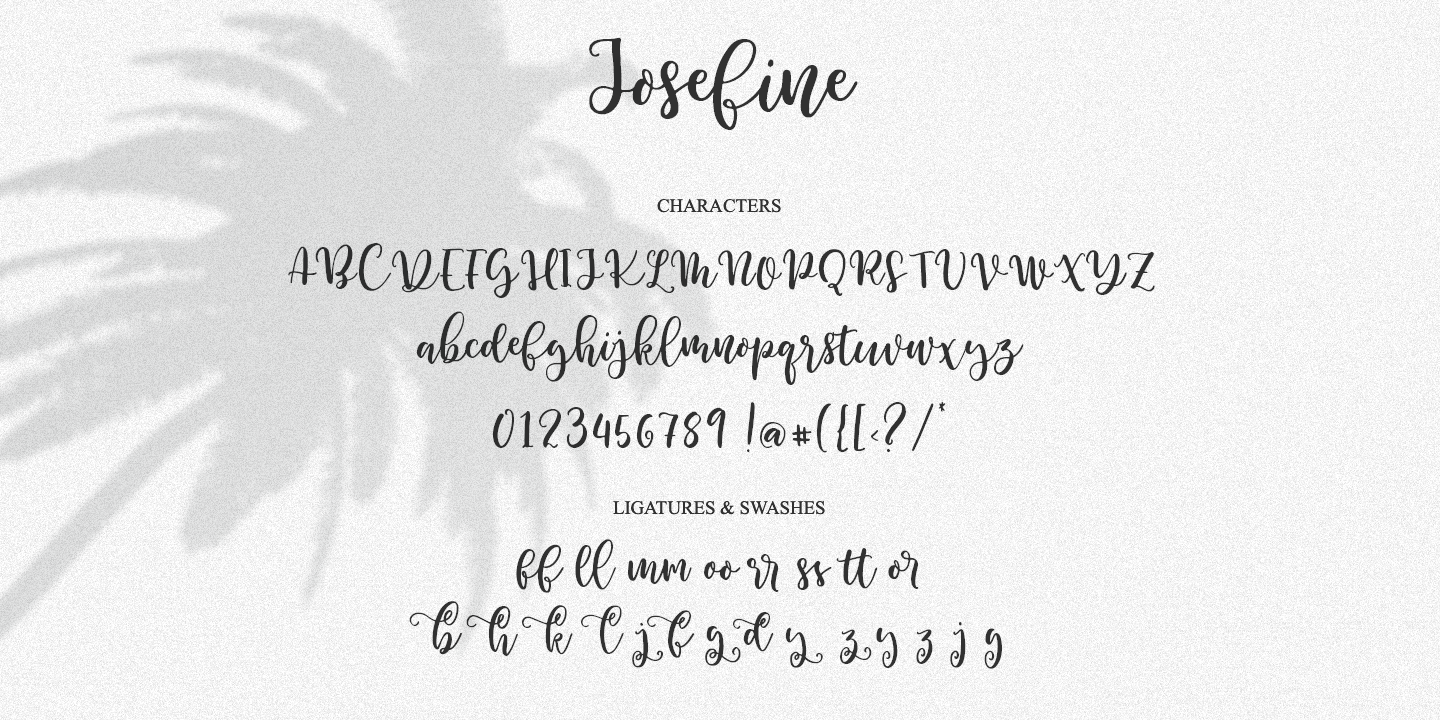 Josefine
CHARACTERS
ABCDEFGHIJKLMNOPQRSTUVWXYZ
abcdefghijklmnopqrstuvwxyz
0123456789 !@#({[<?/*
LIGATURES & SWASHES
ff ll mm oo rr ss tt or
b h k l j f g d y z y z j g